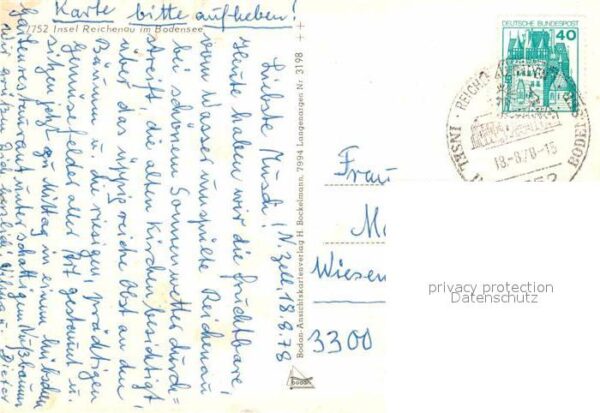 Karte bitte aufheben!
7752 Insel Reichenau im Bodensee
N. Zell, 18.8.78
Liebste Musch!
Heute haben wir die fruchtbare,
vom Wasser umspülte Reichenau
bei schönstem Sonnenwetter durch=
streift, die alten Kirchen besichtigt,
über das üppig reiche Obst an den
Bäumen u. die riesigen, prächtigen
Gemüsefelder aller Art gestaunt u.
sitzen jetzt zu Mittag in einem hübschen
Gartenrestaurant unter schattigen Nußbäumen
Wir grüßen Dich herzlich, u. Dieter
Bodan-Ansichtskartenverlag H. Bockelmann, 7994 Langenargen Nr 3198
bodan
DEUTSCHE BUNDESPOST
40
INSEL REICH
BODEN
18-8.78-15
Frau
Wiesen
3300
privacy protection
Datenschutz